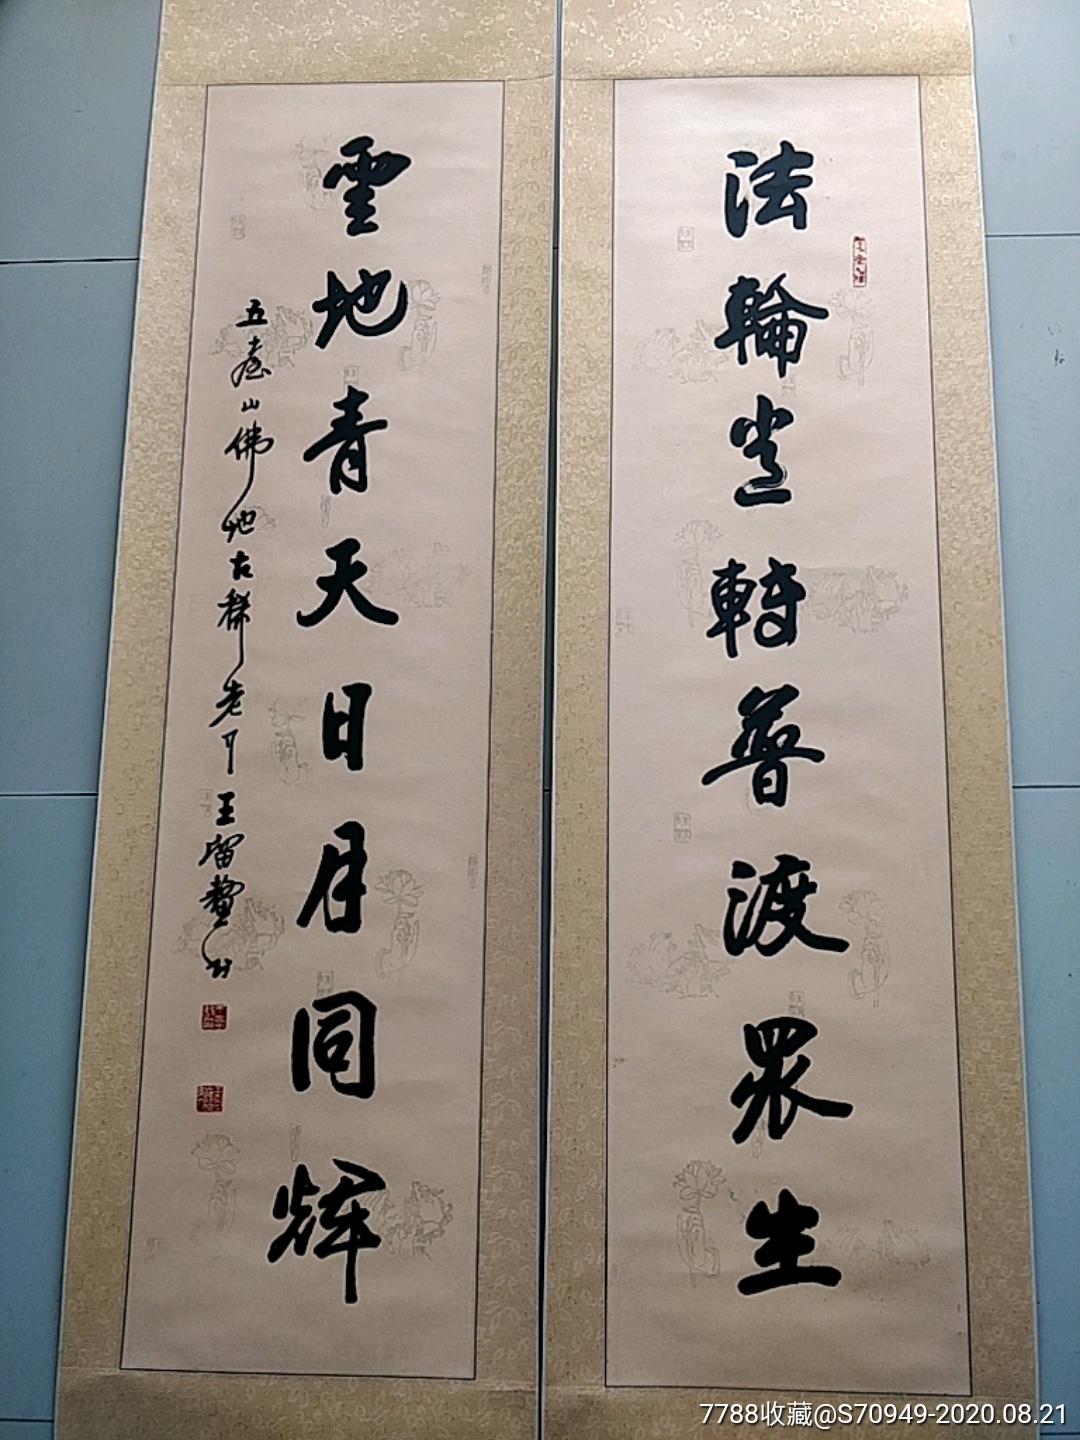 法輪常轉普渡眾生
雲地青天日月同煇
五臺山佛地古稀老 王留鰲书
7788收藏@S70949-2020.08.21